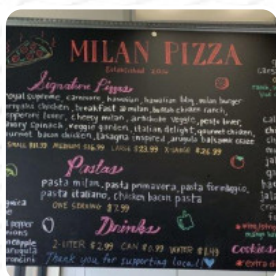 MILAN PIZZA
Established 2016
Signature Pizzas
royal supreme, carnivore, hawaiian, hawaiian bbq, milan burger
teriyaki chicken, breakfast @ milan, buffalo chicken ranch,
pepperoni lover, cheesy milan, artichoke veggie, pesto lover,
savory spinach, veggie garden, italian delight, gourmet chicken,
gourmet bacon chicken, lasagna inspired, arugula balsamic craze
SMALL $11.99 MEDIUM $16.99 LARGE $23.99 X-LARGE $26.99
Pastas
pasta milan, pasta primavera, pasta formaggio,
pasta italiano, chicken bacon pasta
ONE SERVING $7.99
Drinks
2-LITER $2.99 CAN $0.99 WATER $1.49
Thank you for supporting local!
Cookies
pineapple
arugula